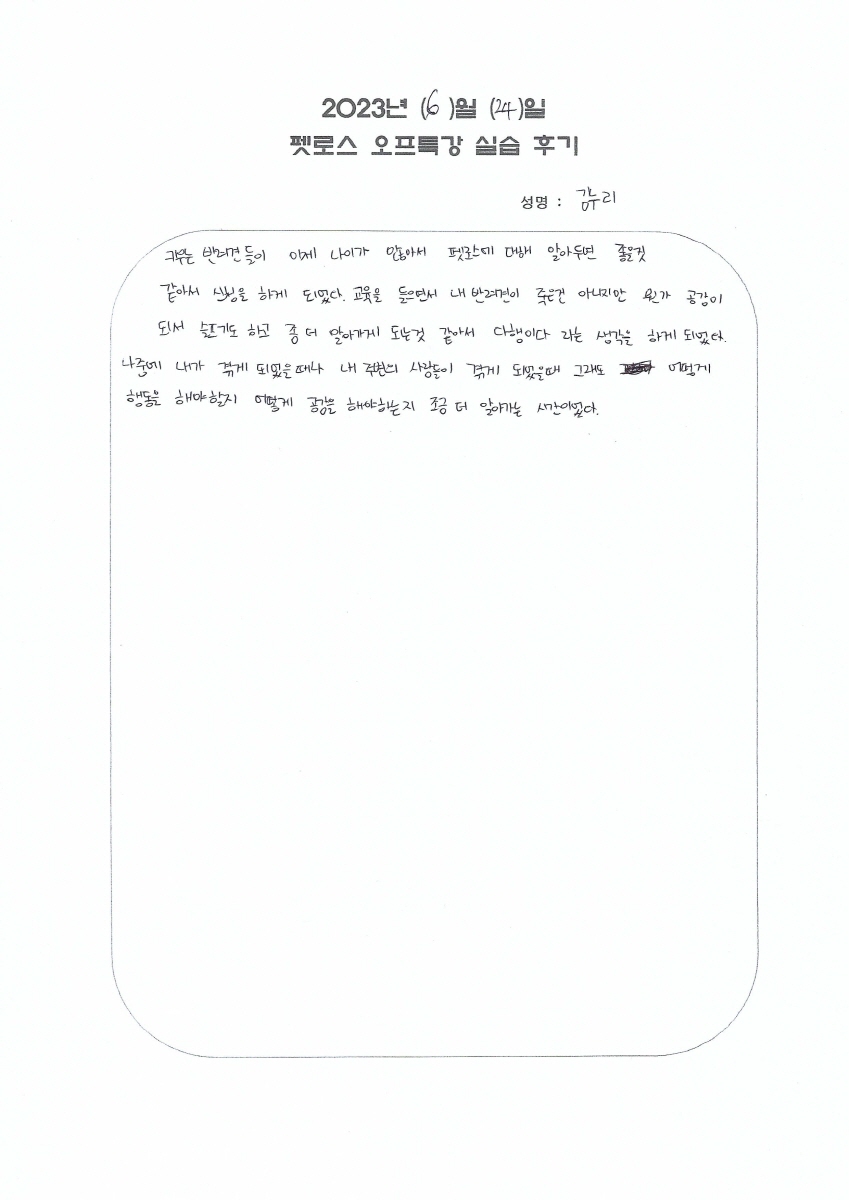 2023년 (6)월 (24)일
펫로스 오프특강 실습 후기
성명 : 김누리
키우는 반려견들이 이제 나이가 많아서 펫로스에 대해 알아두면 좋을것
같아서 신청을 하게 되었다. 교육을 들으면서 내 반려견이 죽은건 아니지만 뭔가 공감이
되서 슬프기도 하고 좀 더 알아가게 되는것 같아서 다행이다 라는 생각을 하게 되었다.
나중에 내가 겪게 되었을때나 내 주변의 사람들이 겪게 되었을때 그래도 어떻게
행동을 해야할지 어떻게 공감을 해야하는지 조금 더 알아가는 시간이었다.